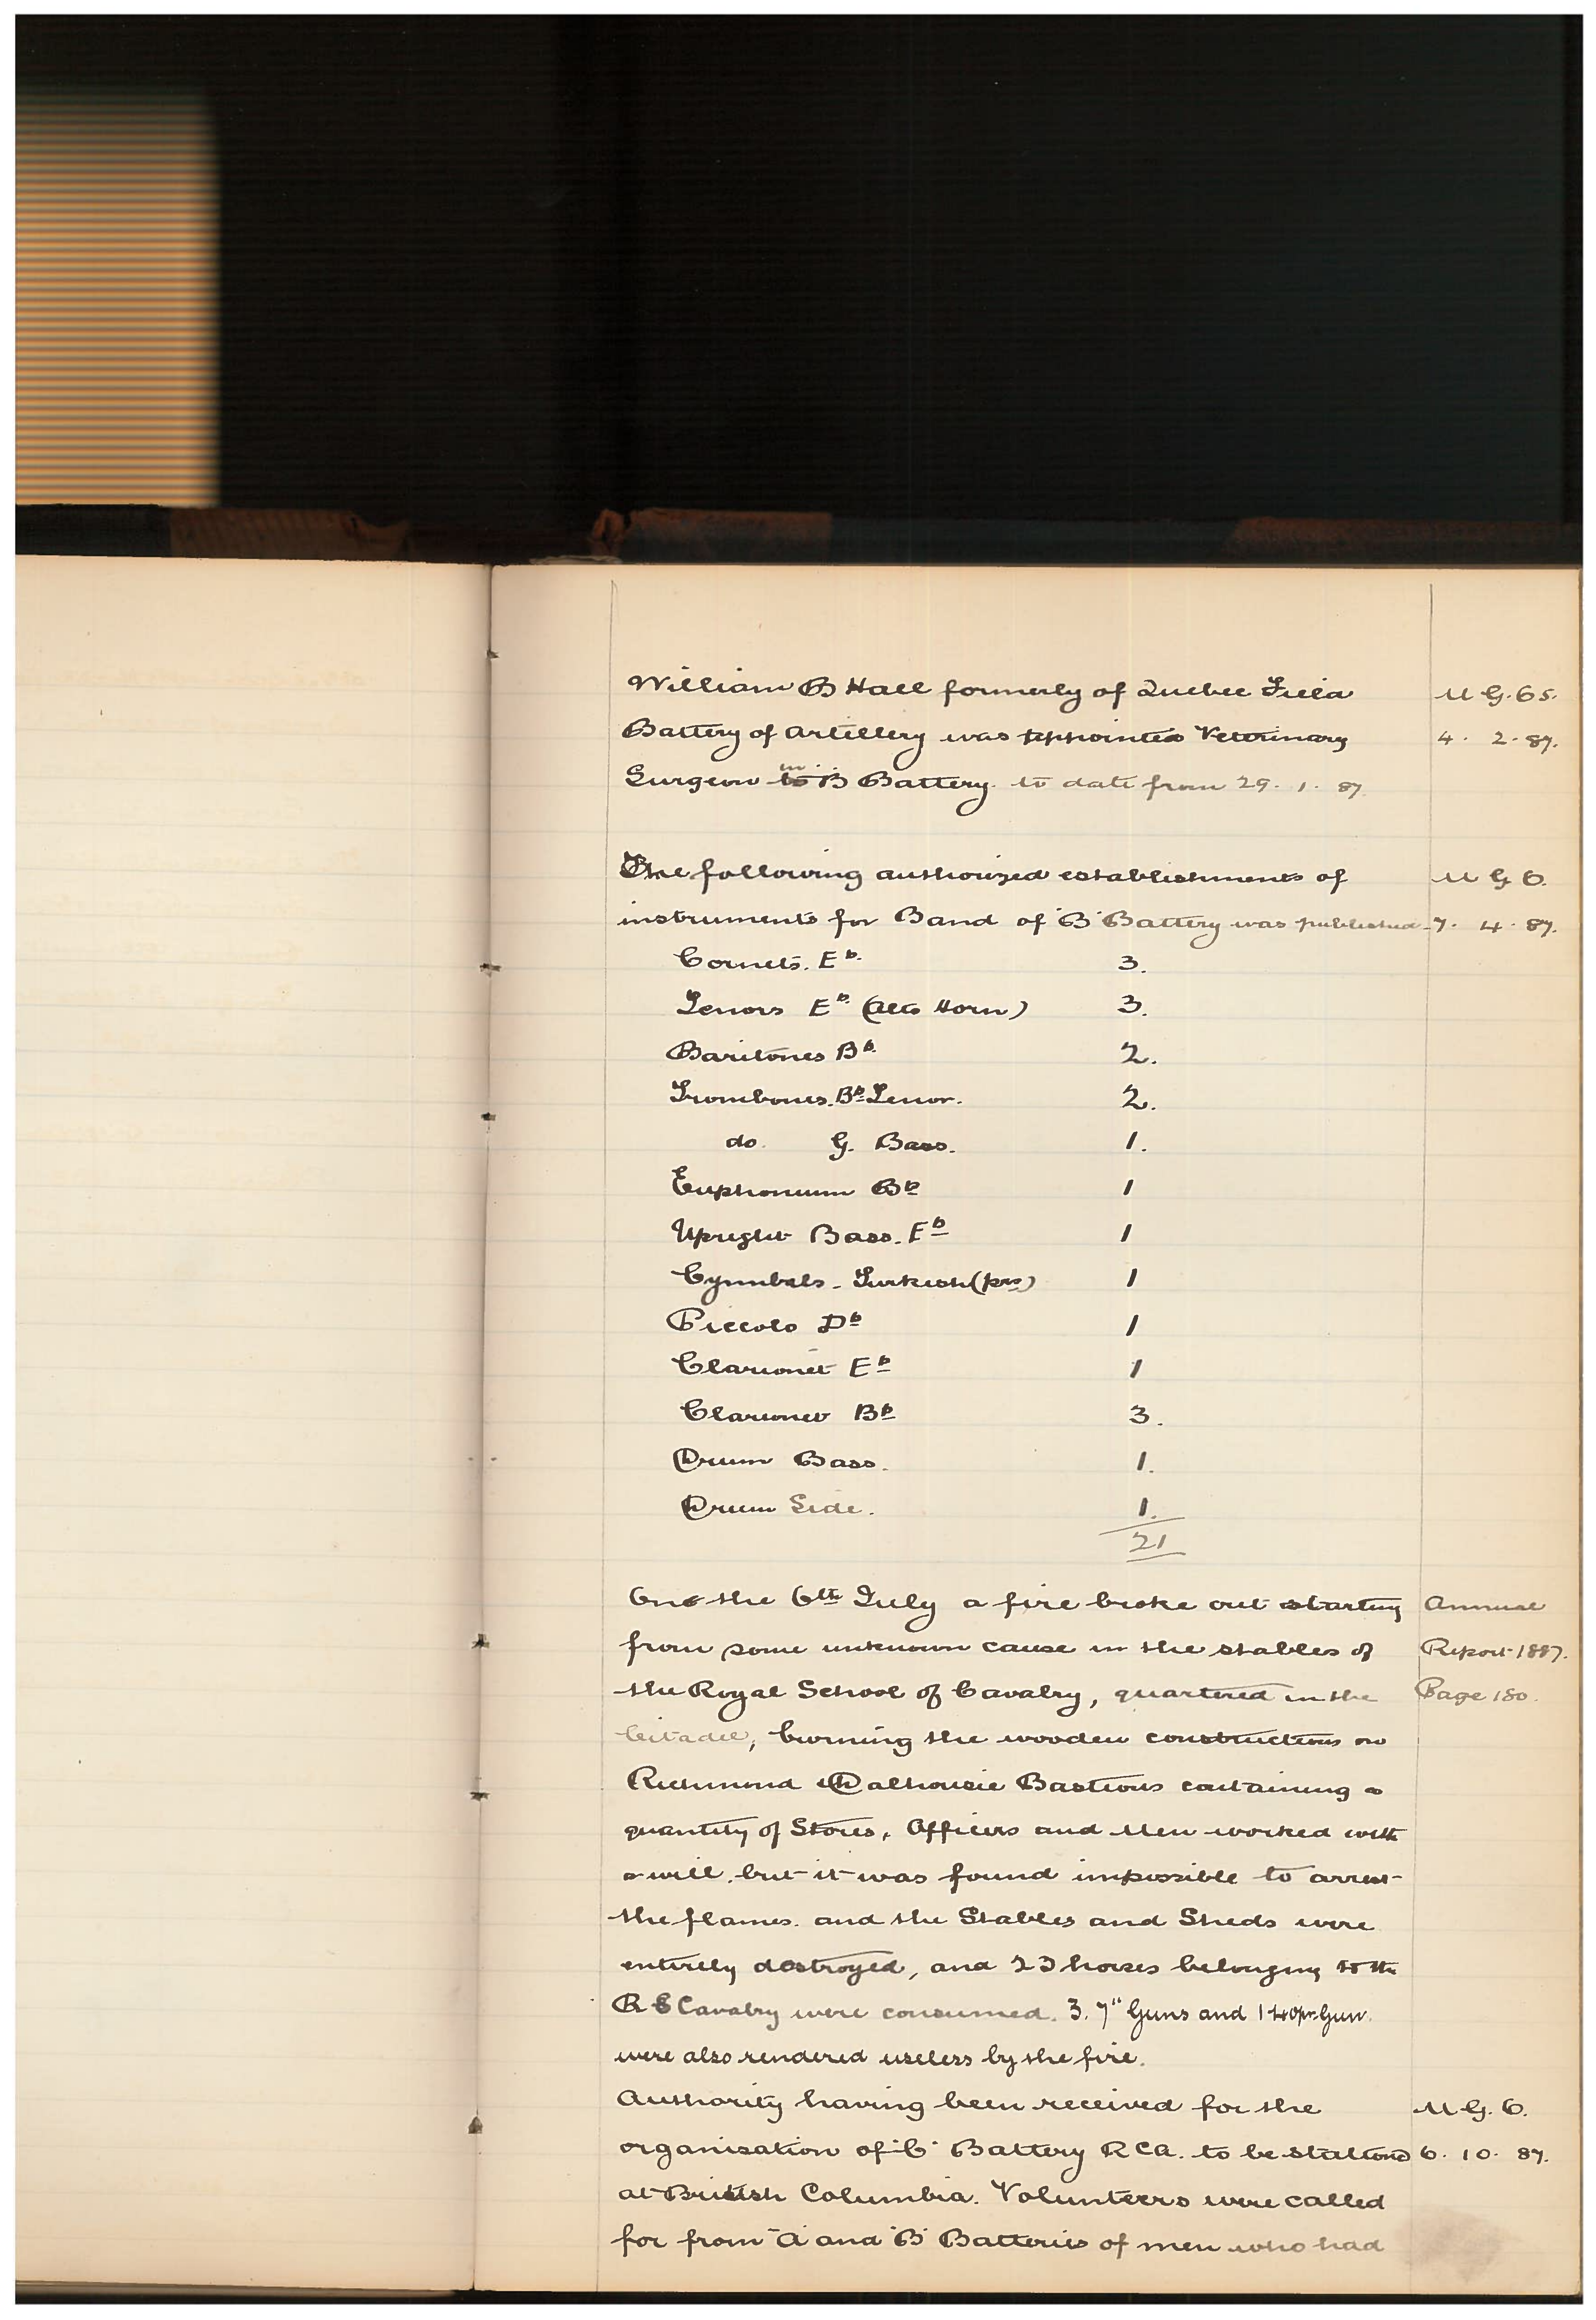 William B Hall formerly of Quebec Field M G. Os.
Battery of Artillery was appointed Veterinary 4. 2. 87.
Surgeon in B Battery. to date from 29. 1. 87.
The following authorized establishments of M G O.
instruments for Band of "B" Battery was published 7. 4. 87.
Cornets. Eb. 3.
Tenors Eb (Alto Horn) 3.
Baritones Bb 2.
Trombones. Bb Tenor. 2.
do. G. Bass. 1.
Euphonium Bb 1
Upright Bass. Eb 1
Cymbals - Turkish (prs) 1
Piccolo Db 1
Clarionet Eb 1
Clarionet Bb 3.
Drum Bass. 1.
Drum Side. 1.
21
On the 6th July a fire broke out starting Annual
from some unknown cause in the stables of Report 1887.
the Royal School of Cavalry, quartered in the Page 180.
Citadel, burning the wooden constructions on
Richmond & Dalhousie Bastions containing a
quantity of Stores. Officers and Men worked with
a will. but it was found impossible to arrest
the flames. and the Stables and Sheds were
entirely destroyed, and 23 horses belonging to the
R S Cavalry were consumed. 3. 7" Guns and 1 40pr Gun.
were also rendered useless by the fire.
Authority having been received for the M G. O.
organisation of "C" Battery R C A. to be stationed 6. 10. 87.
at British Columbia. Volunteers were called
for from "A" and "B" Batteries of men who had